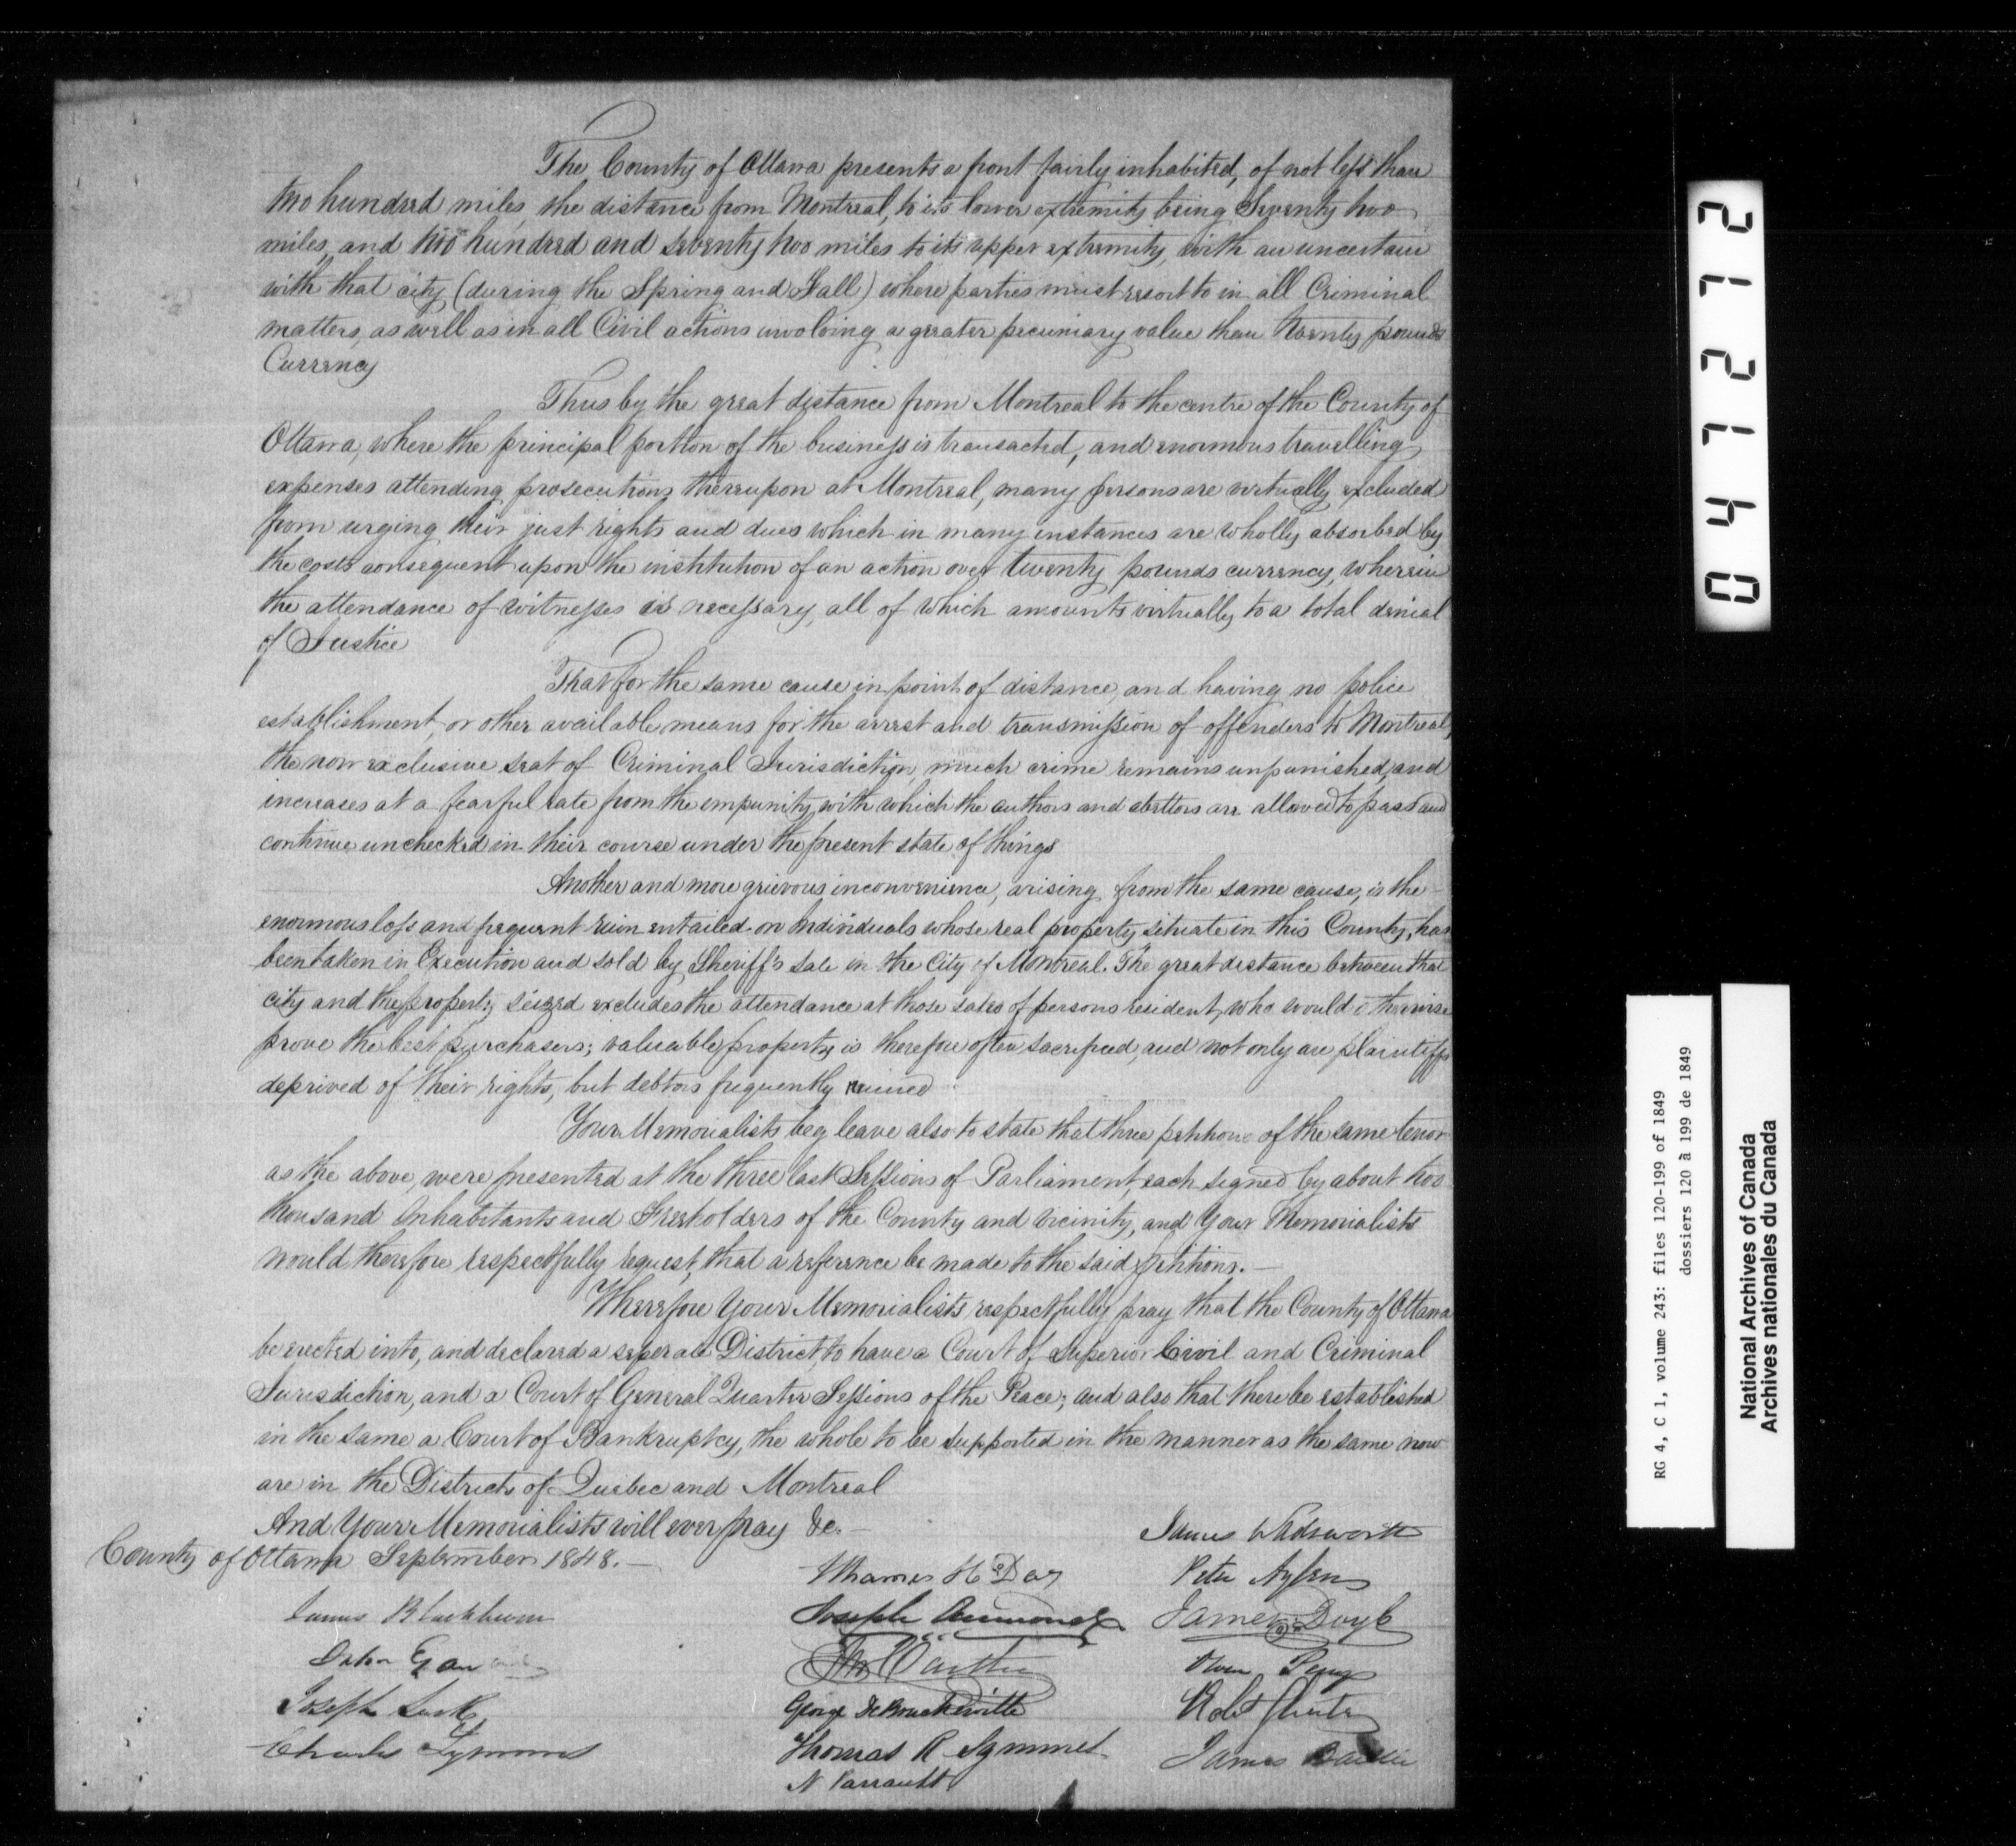 The County of Ottawa presents a front fairly inhabited, of not less than
two hundred miles, the distance from Montreal, to its lower extremity being Seventy two
miles, and two hundred and seventy two miles to its upper extremity, with an uncertain
with that city (during the Spring and Fall) where parties must resort to in all Criminal
matters, as well as in all Civil actions involving a greater pecuniary value than twenty pounds
Currency
Thus by the great distance from Montreal to the centre of the County of
Ottawa, where the principal portion of the business is transacted, and enormous travelling
expenses attending prosecutions thereupon at Montreal, many persons are virtually excluded
from urging their just rights and dues which in many instances are wholly absorbed by
the costs consequent upon the institution of an action over twenty pounds currency, wherein
the attendance of witnesses is necessary, all of which amounts virtually to a total denial
of Justice
That for the same cause in point of distance, and having no police
establishment, or other available means for the arrest and transmission of offenders to Montreal,
the now exclusive seat of Criminal Jurisdiction, much crime remains unpunished, and
increases at a fearful rate from the empunity with which the authors and abettors are allowed to pass and
continue unchecked in their course under the present state of things
Another and more grievous inconvenience, arising from the same cause, is the
enormous loss and frequent ruin entailed on individuals whose real property situate in this County, has
been taken in Execution and sold by Sheriff's sale in the City of Montreal. The great distance between that
city and the property seized excludes the attendance at those sales of persons resident, who would otherwise
prove the best purchasers; valuable property is therefore often sacrificed, and not only are plaintiffs
deprived of their rights, but debtors frequently ruined
Your Memorialists beg leave also to state that three petitions of the same tenor
as the above, were presented at the three last Sessions of Parliament, each signed by about two
thousand Inhabitants and Freeholders of the County and vicinity, and Your Memorialists
would therefore respectfully request, that a reference be made to the said petitions.—
Wherefore Your Memorialists respectfully pray that the County of Ottawa
be erected into, and declared a seperate District to have a Court of Superior Civil and Criminal
Jurisdiction, and a Court of General Quarter Sessions of the Peace; and also that there be established
in the same a Court of Bankruptcy, the whole to be supported in the manner as the same now
are in the Districts of Quebec and Montreal
And Your Memorialists will ever pray &c.—
County of Ottawa September 1848.—
James Wadsworth
Peter Aylen
James Doyle
Owen
Robt
James
Thomas
Joseph Aumond
George De Boucherville
Thomas R Symmes
N Parrault
James Blackburn
John
Joseph Lusk
Charles Symmes
04 12 12
RG 4, C 1, volume 243: files 120-199 of 1849
dossiers 120 à 199 de 1849
National Archives of Canada
Archives nationales du Canada